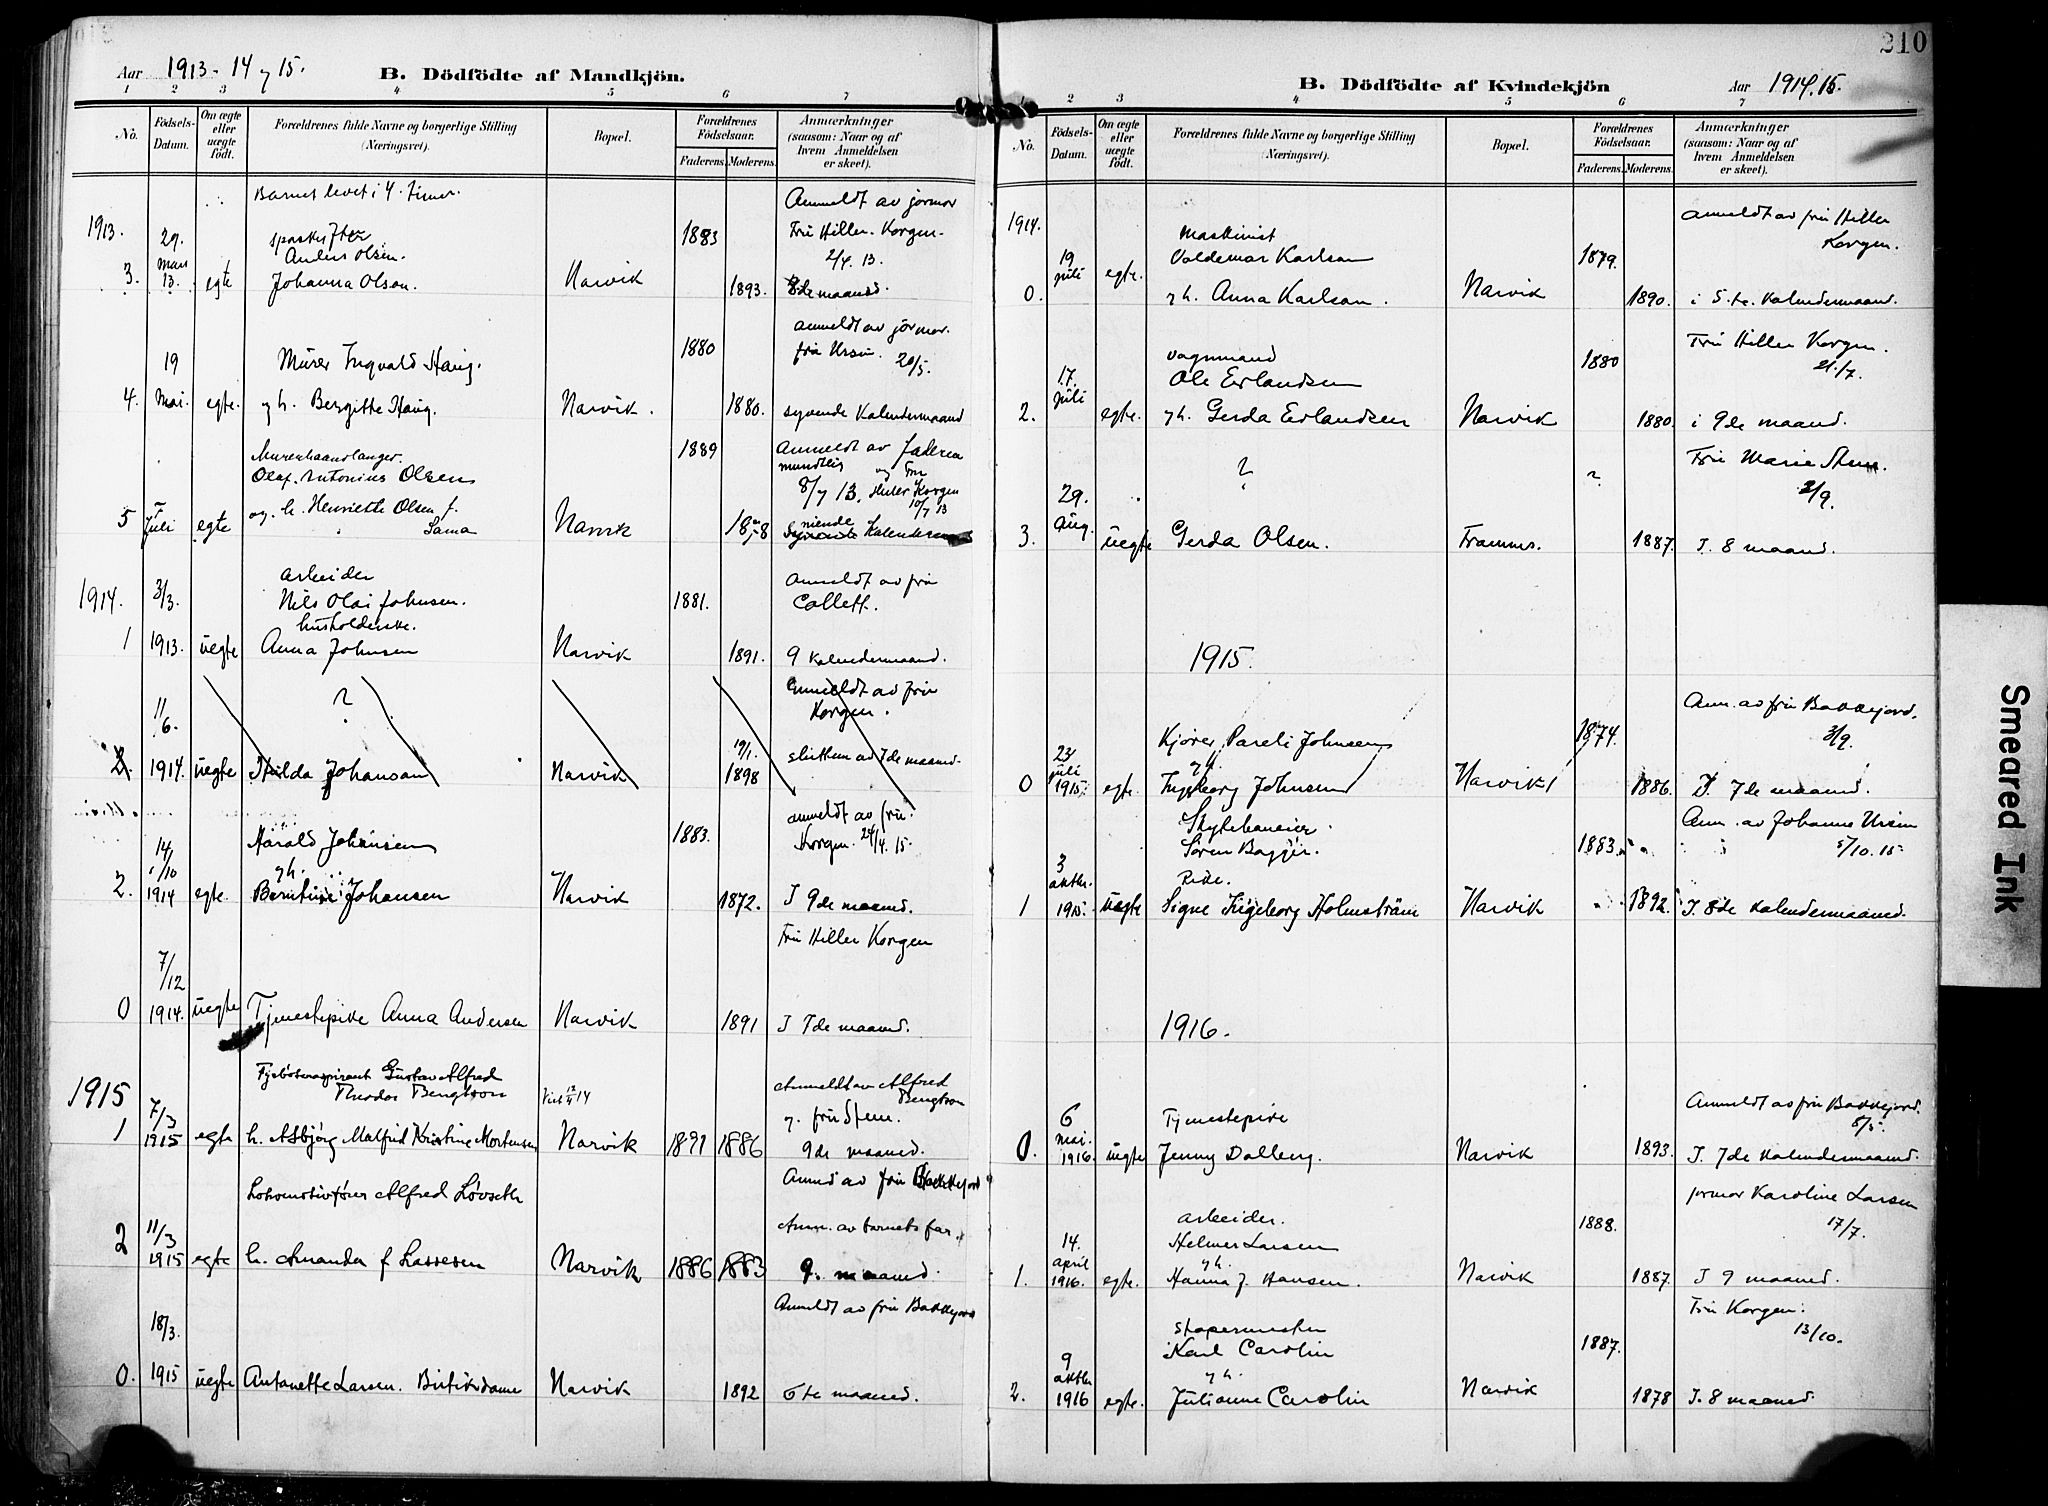 Aar 1913-14 og 15. B. Dödfödte af Mandkjön.
1 2 3 4 5 6 7
No. Födsels-Datum. Om ægte eller uægte födt. Forældrenes fulde Navne og borgerlige Stilling (Næringsvei). Bopæl. Forældrenes Födselsaar. Faderens. Moderens. Anmærkninger (saasom: Naar og af hvem Anmeldelsen er skeet).
Barnet levet i 4 timer.
Anmeldt av jormor
1913. 29. 1883 Fru Hiller Korgen
Anders Olsen. 2/4. 13.
3. mars 13. egte Johanna Olson. Narvik 1893. 8de maaned.
anmeldt av jormor
19 Murer Ingvald Haug. 1880 fru Ursin. 20/5.
4. Mai. egte. og h. Bergitte Haug. Narvik. 1880. syvende Kalendermaaned
Murerhaandlanger. 1889 Anmeldt av faderen
Olaf Antonius Olsen mundtlig og Fru
8/7 13. Hiller Korgen 10/7 13
5 7 Juli egte og h. Henriette Olsen f. Sama Narvik niende
1914. 3/3. arbeider
Nils Olai Johnsen. 1881. Anmeldt av fru Collett.
husholderske.
1 1913. uegte Anna Johnsen Narvik 1891. 9 Kalendermaaned.
11/6. ? Anmeldt av fru Korgen.
2. 1914. uegte Hilda Johansan Narvik 19/1. 1898 slutten av 7de maaned.
anmeldt av fru
14/10 Harald Johansen 1883. Korgen. 24/4. 15.
og h.
2. 1914 egte. Johansen Narvik 1872. I 9de maaned.
Fru Hiller Korgen
7/12
0 1914. uegte Tjenestepike Anna Andersen Narvik 1891 I 7de maaned.
1915 Fyrbøteraspirant Gustav Alfred Anmeldt av Alfred
7/3 Theodor Bengtson Viet 14 Bengtson
og fru Steen.
1 1915 egte h. Asbjørg Malfrid Kristine Mortensen Narvik 1891 1886 9de maaned.
Anm av fru Bakkejord
Lokomotivfører Alfred Løvseth
11/3 Anm. av barnets far.
2 1915 egte h. Amanda f Lassesen Narvik 1886 1883 9. maaned.
Anmeldt av fru Bakkejord
18/3.
0. 1915 uegte Antonette Larsen. Butikdame Narvik 1892 6te maaned.
210
B. Dödfödte af Kvindekjön Aar 1914. 15.
1 2 3 4 5 6 7
No. Födsels-Datum. Om ægte eller uægte födt. Forældrenes fulde Navne og borgerlige Stilling (Næringsvei). Bopæl. Forældrenes Födselsaar. Faderens. Moderens. Anmærkninger (saasom: Naar og af hvem Anmeldelsen er skeet).
1914. Maskinist anmeldt av fru Hiller Korgen.
19 juli egte. Valdemar Karlson 1879.
0. og h. Anna Karlson. Narvik 1890. i 5.te. Kalendermaaned.
vognmand 1880 Fru Hiller Korgen. 21/7.
17. juli Ole Erlandsen
2. egte. og h. Gerda Erlandsen Narvik 1880. i 9de maaned.
? ? Fru Marie Steen. 2/9.
29. aug.
3. uegte Gerda Olsen. Framnes. 1887. I. 8 maaned.
1915.
Anm. av fru Bakkejord.
Kjører Pareli Johnsen 1874. 3/9.
23 juli og h.
0 1915. egte. Ingeborg Johnsen Narvik 1886. I. 7de maaned.
Anm. av Johanne Ursin
Søren Bagger. 1883. 5/10. 15
3 oktbr. Pike.
1 1915. uegte Signe Ingeborg Holmström Narvik 1892. I. 8de Kalendermaaned.
1916.
Anmeldt av fru Bakkejord. 8/5.
6 mai. Tjenestepike
0. 1916. uegte Jenny Dalberg. Narvik 1893. I. 7de Kalendermaaned.
jormor Karoline Larsen
arbeider. 1888. 17/7.
14. Helmer Larsen
april og h.
1. 1916. egte. Hanna f. Hansen. Narvik 1887. I 9 maaned.
Fru Korgen.
1887. 13/10.
9 Karl Carolin
oktbr og h.
2. 1916 egte. Julianne Carolin Narvik 1878 I. 8 maaned.
Smeared Ink